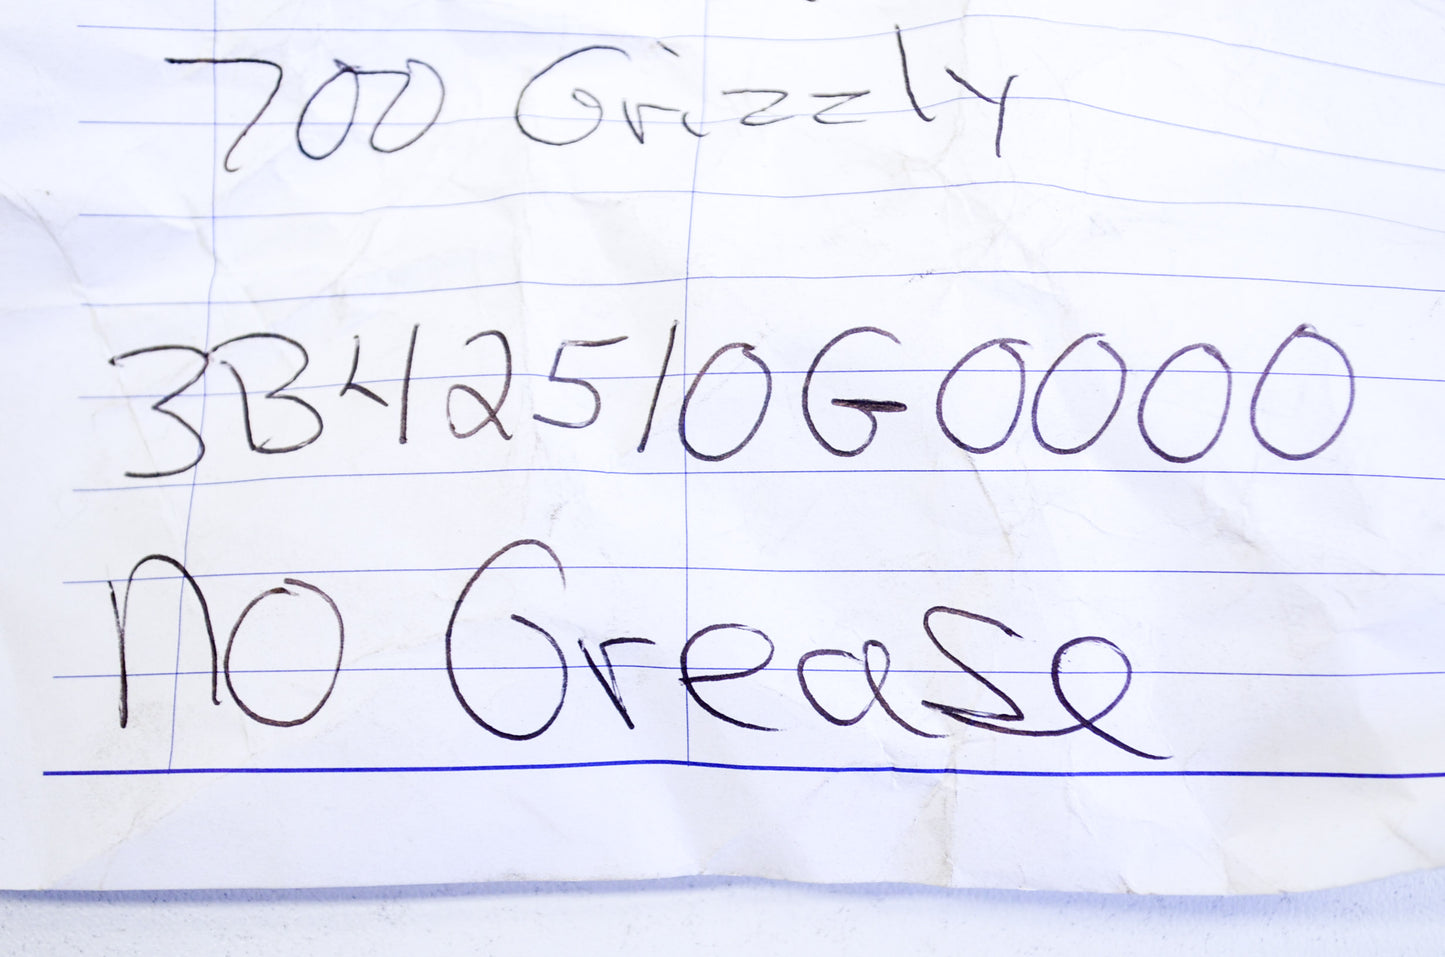 700 Grizzly
3B42510G0000
No Grease